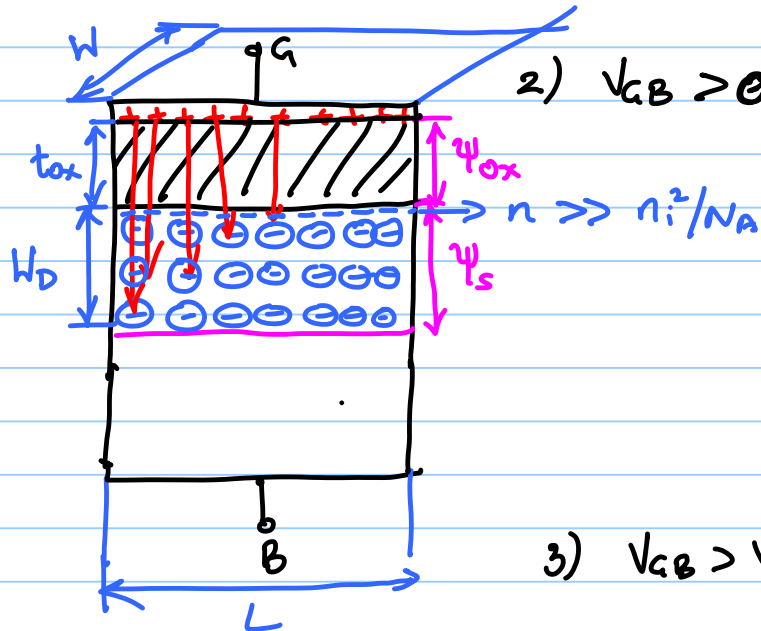 W
G
2) V_GB > 0
+ + + + + + + + + +
t_ox
ψ_ox
n >> n_i²/N_A
W_D
ψ_s
B
3) V_GB > V
L